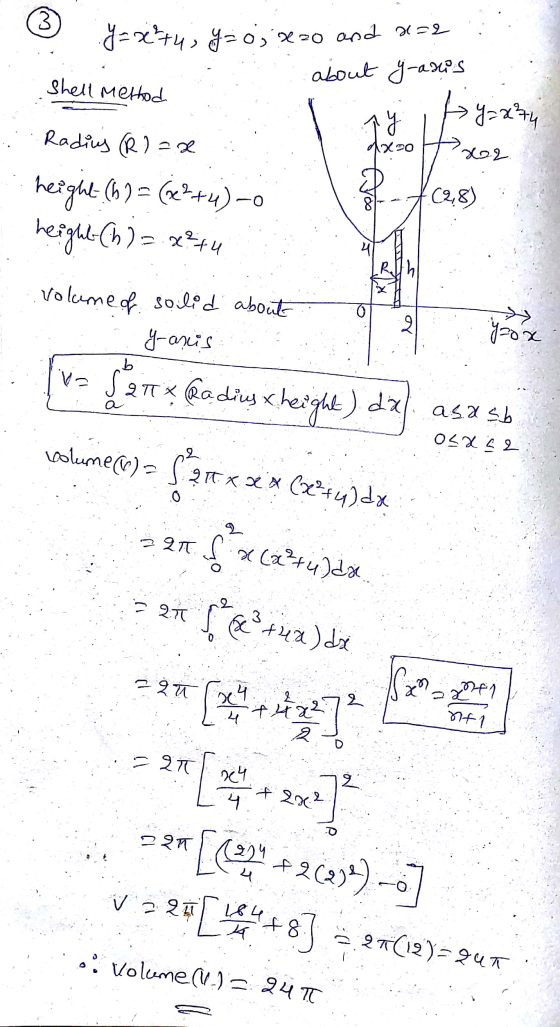 ③ y=x²+4, y=0, x=0 and x=2
about y-axis
Shell Method
Radius (R) = x
height (h) = (x²+4)-0
height (h) = x²+4
y
x=0
y=x²+4
x=2
8
(2,8)
4
R
h
x
0
2
y=0 x
volume of solid about
y-axis
V = ∫ₐᵇ 2π × (Radius × height) dx
a≤x≤b
0≤x≤2
volume(v) = ∫₀² 2π × x × (x²+4)dx
= 2π ∫₀² x(x²+4)dx
= 2π ∫₀² (x³+4x)dx
= 2π [x⁴/4 + 4x²/2]₀²
2
∫xⁿ = xⁿ⁺¹/n+1
= 2π [x⁴/4 + 2x²]₀²
= 2π [((2)⁴/4 + 2(2)²) - 0]
V = 2π [16/4 + 8] = 2π(12) = 24π
4
∴ Volume(V) = 24π